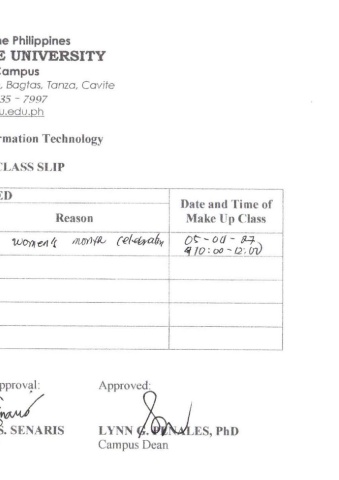 he Philippines
E UNIVERSITY
Campus
, Bagtas, Tanza, Cavite
35 - 7997
u.edu.ph
rmation Technology
CLASS SLIP
ED
Reason
Date and Time of
Make Up Class
women's month celebration
10:00 - 12:00
pproval:
Approved:
S. SENARIS
LYNN G. PENALES, PhD
Campus Dean